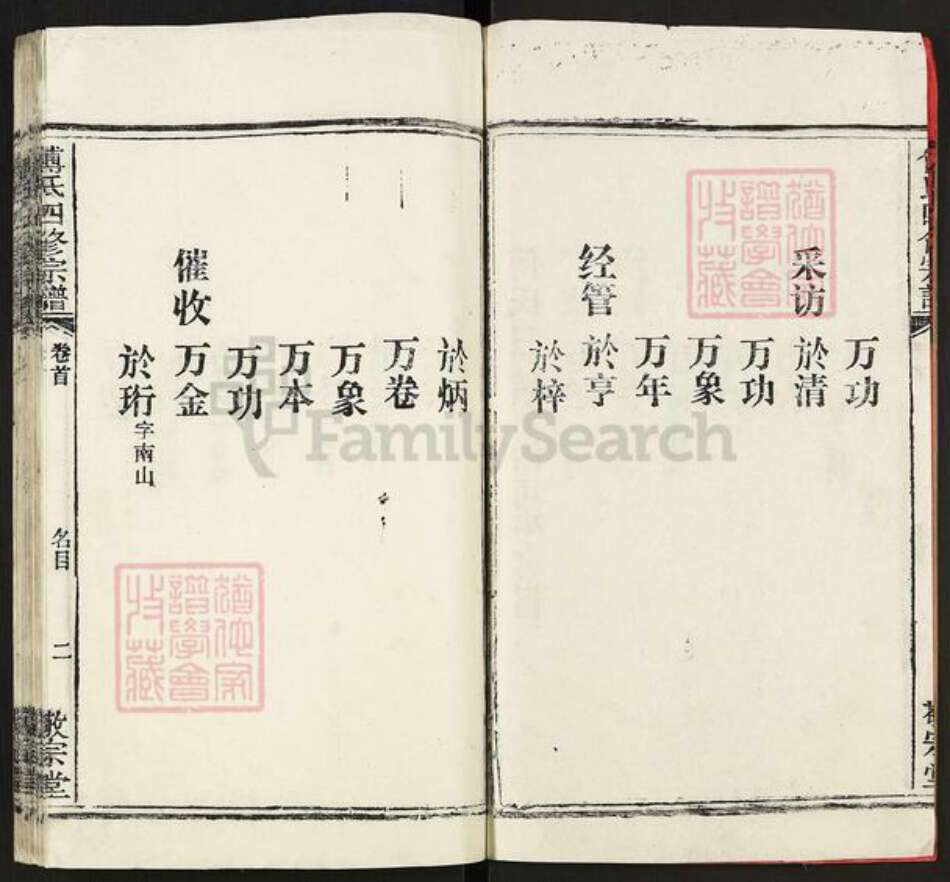 万功
采访
於清
万功
万象
万年
经管
於亨
於梓
於炳
万卷
万象
万本
万功
催收
万金
於珩字南山
傅氏四修宗谱
卷首
名目
二
敦宗堂
FamilySearch